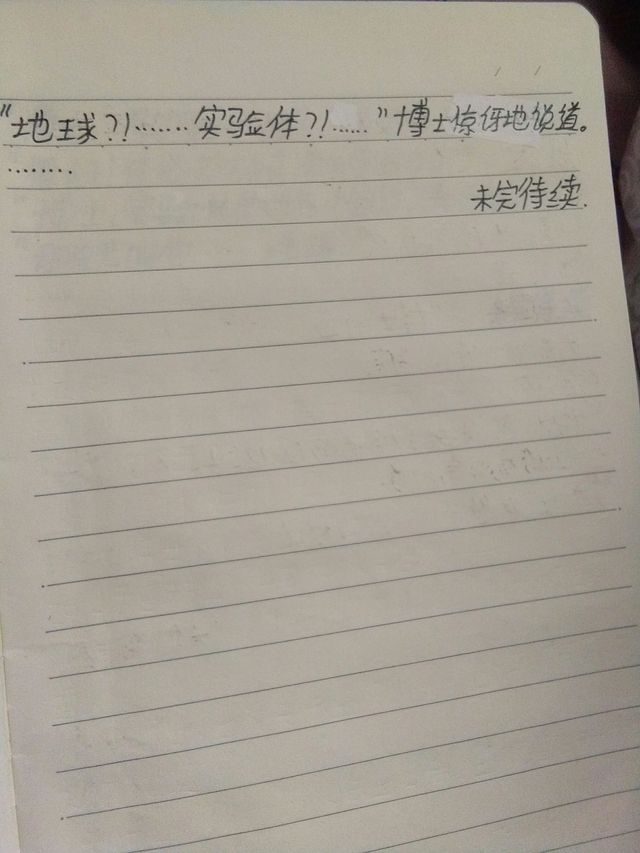 “地球?!.......实验体?!......”博士惊讶地说道。
........
未完待续.